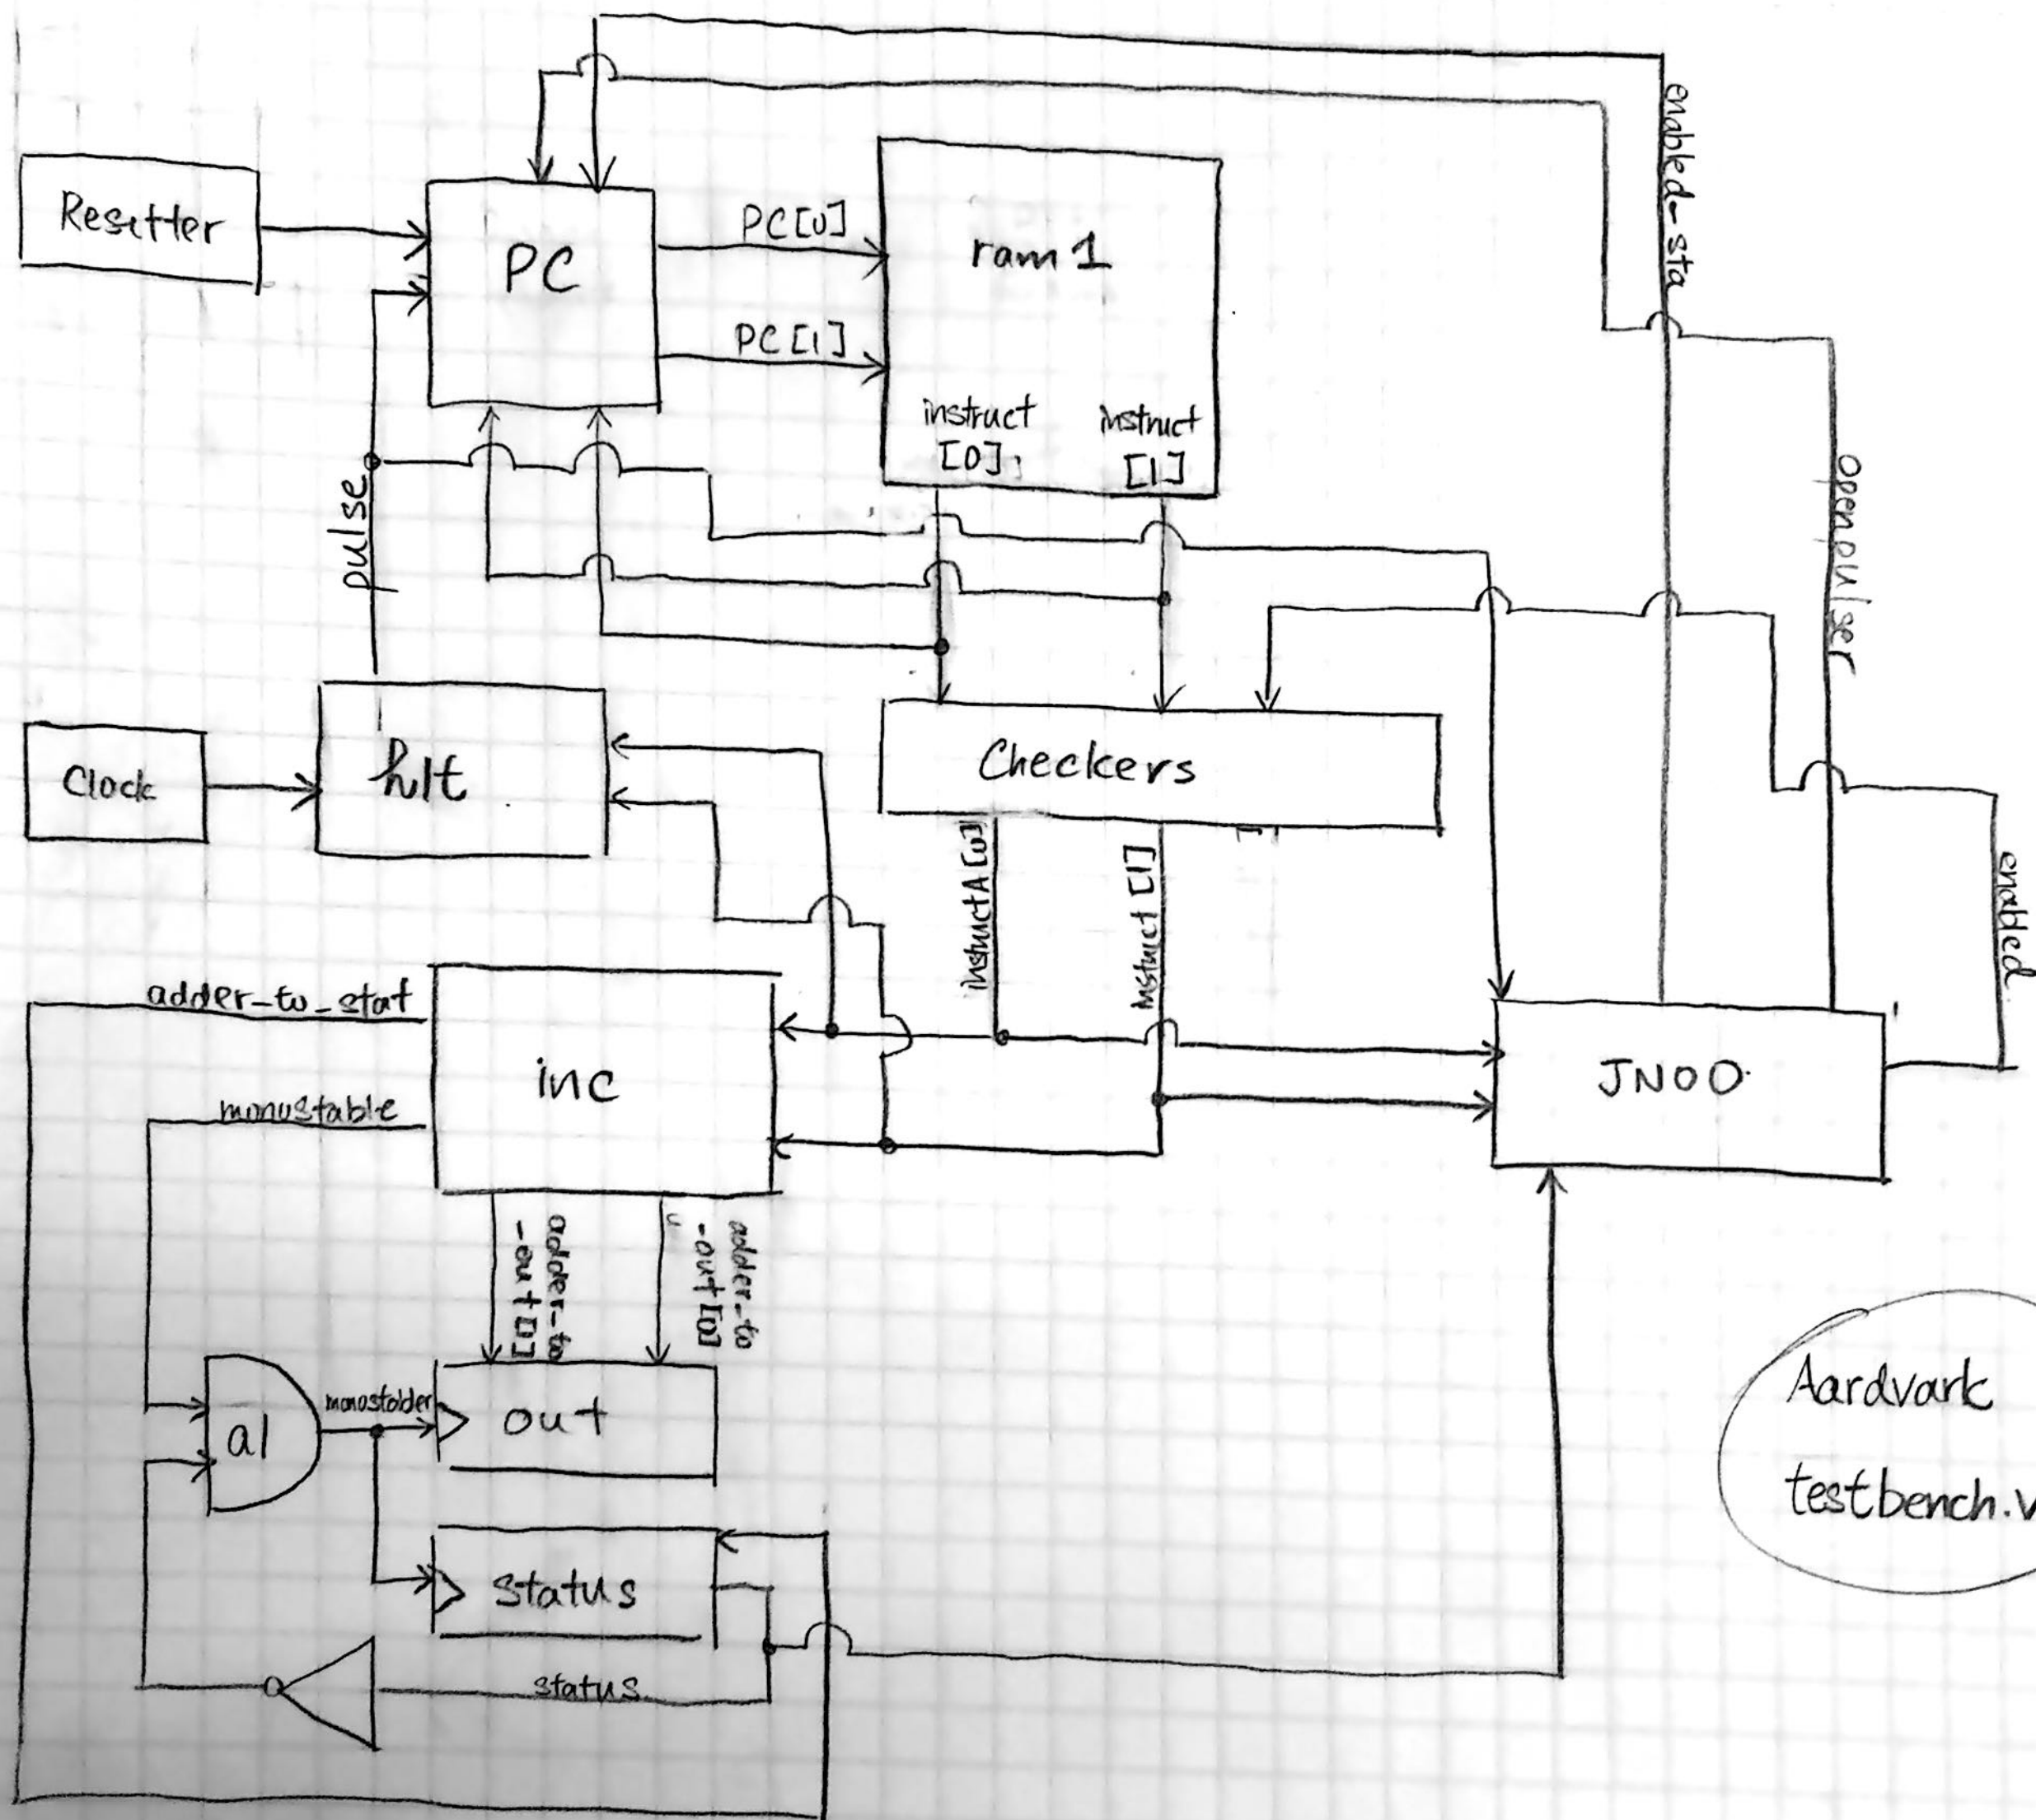 enabled-sta
Resetter
PC
PC[0]
PC[1]
ram 1
instruct
[0]
instruct
[1]
pulse
openpulser
Clock
hlt
Checkers
instructA[0]
Instruct [1]
enabled
adder-to_stat
monostable
inc
JNOO
adder-to
-out[1]
adder-to
-out[0]
a1
out
status
status
Aardvark
testbench.v